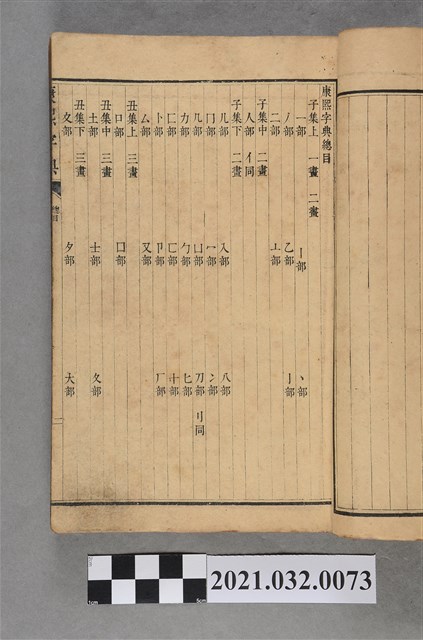 康熙字典總目
子集上　一畫　二畫
一部　丨部　丶部
丿部　乙部　亅部
二部　亠部
子集中　二畫
人部　亻同
子集下　二畫
儿部　入部　八部
冂部　冖部　冫部
几部　凵部　刀部　刂同
力部　勹部　匕部
匚部　匸部　十部
卜部　卩部　厂部
厶部　又部
丑集上　三畫
口部　囗部
丑集中　三畫
土部　士部　夂部
丑集下　三畫
夊部　夕部　大部
康熙字典
總目
2021.032.0073